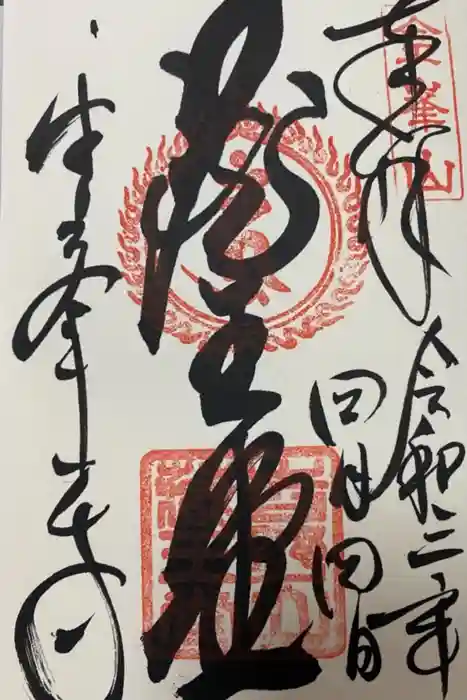 金峯山
奉拝
令和三年
四月四日
蔵王堂
金峯山寺